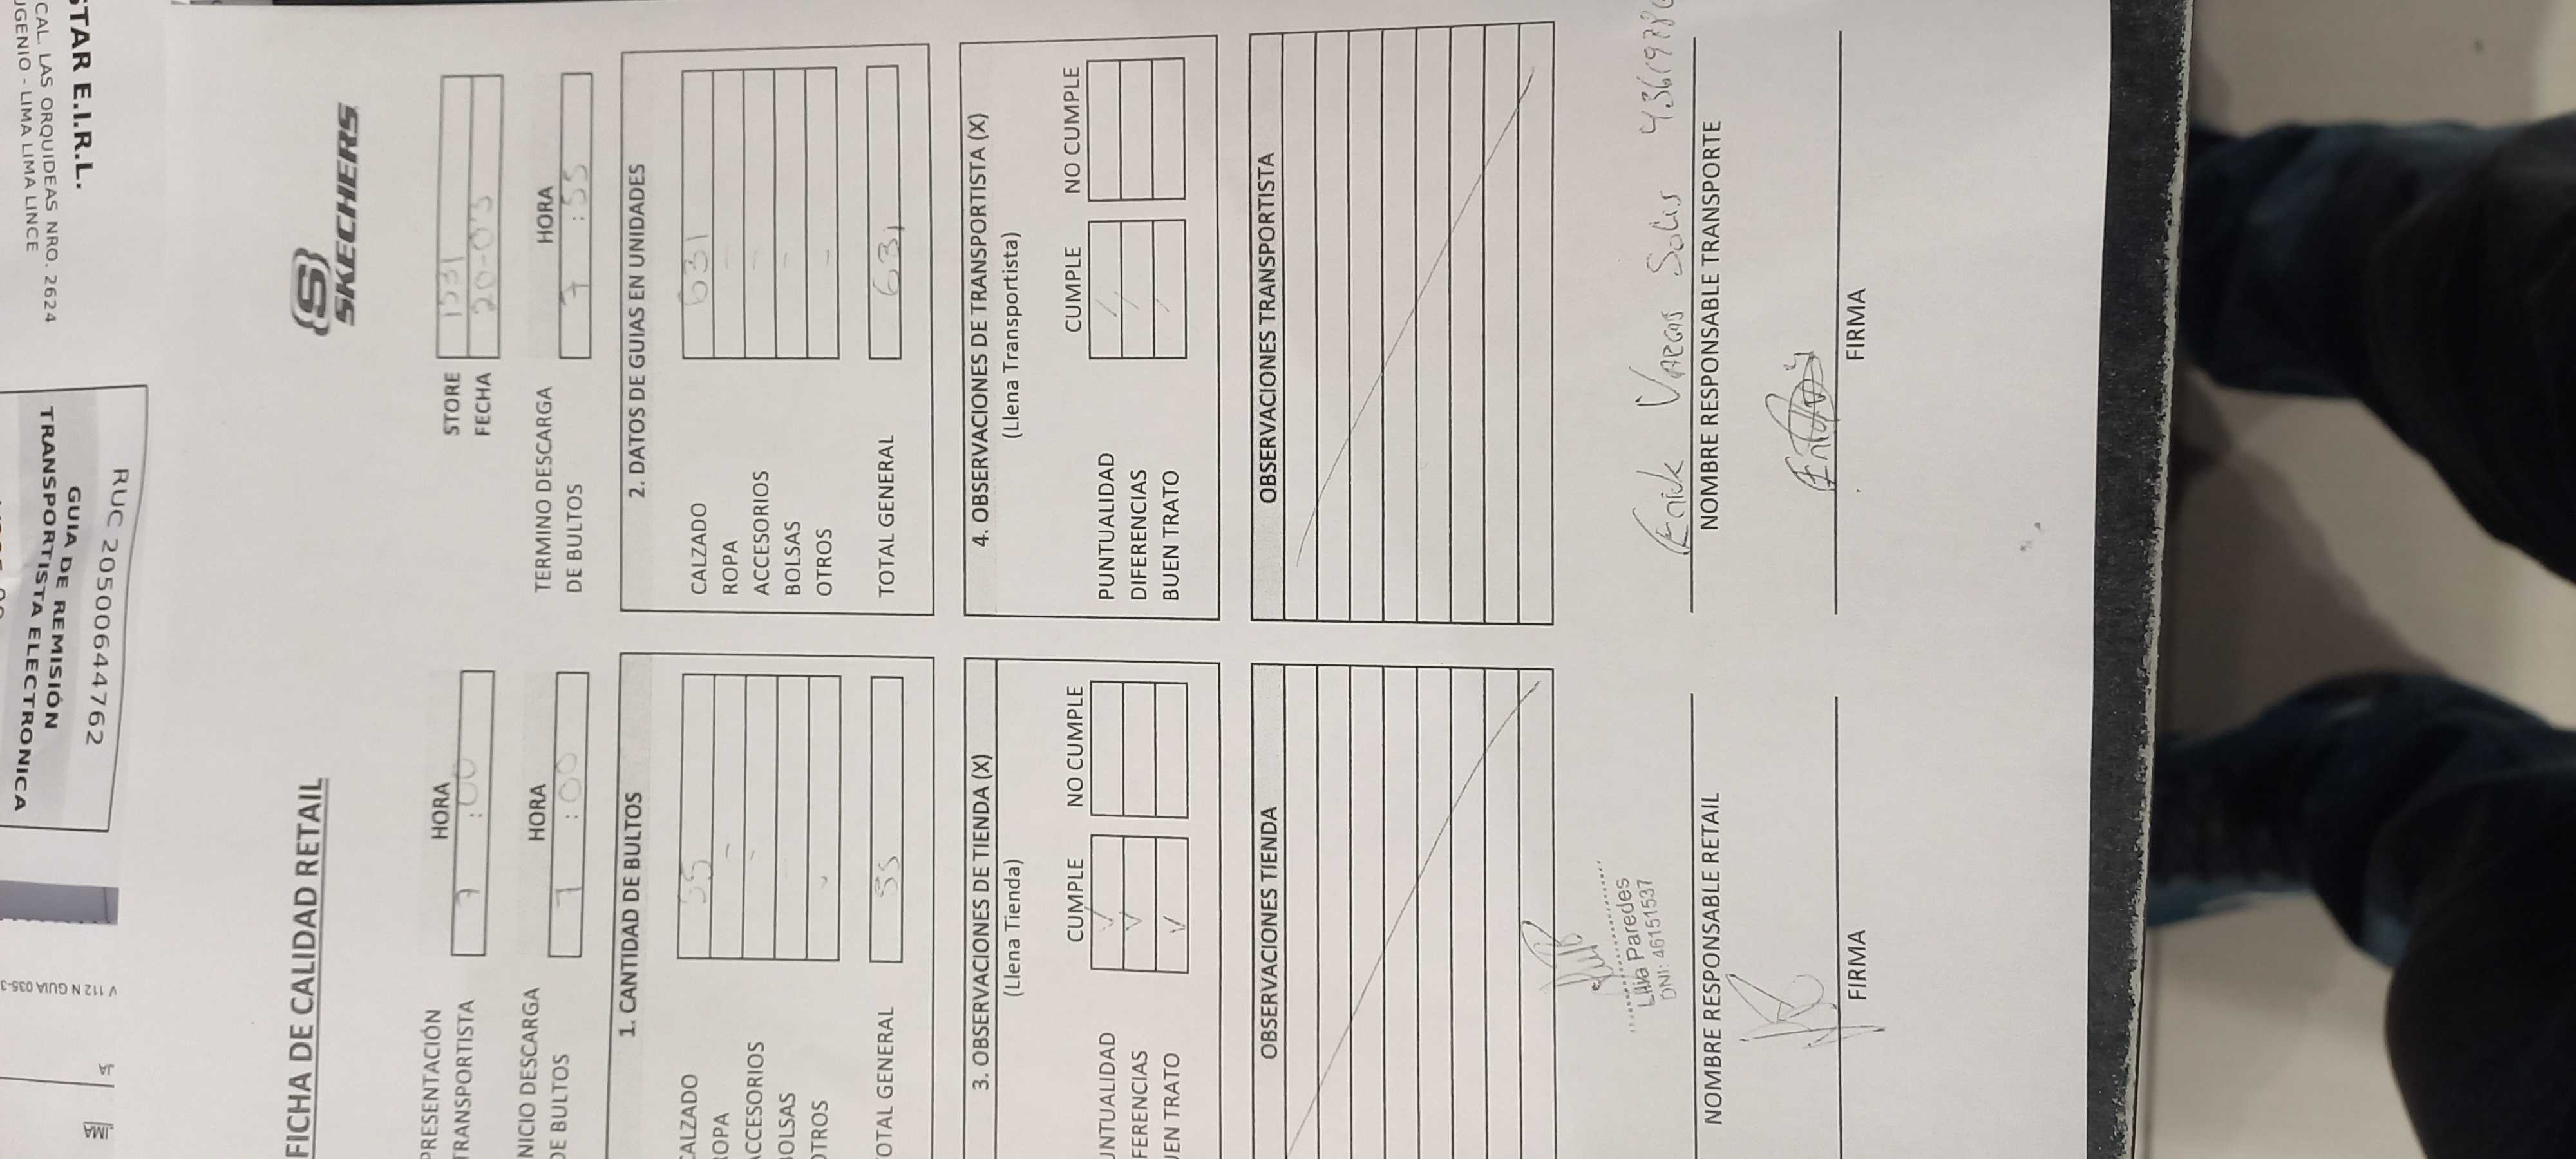 STAR E.I.R.L.
CAL. LAS ORQUIDEAS NRO. 2624
UGENIO - LIMA LIMA LINCE
RUC 20500644762
GUIA DE REMISIÓN
TRANSPORTISTA ELECTRONICA
V 112 N GUIA 035-3
JA
IMA
SKECHERS
FICHA DE CALIDAD RETAIL
STORE 1531
FECHA 20-03
PRESENTACIÓN
TRANSPORTISTA
HORA
7 :00
NICIO DESCARGA
DE BULTOS
HORA
7 :00
TERMINO DESCARGA
DE BULTOS
HORA
7 :55
1. CANTIDAD DE BULTOS
CALZADO 55
ROPA -
ACCESORIOS -
BOLSAS
OTROS -
TOTAL GENERAL 55
2. DATOS DE GUIAS EN UNIDADES
CALZADO 631
ROPA -
ACCESORIOS -
BOLSAS -
OTROS -
TOTAL GENERAL 631
3. OBSERVACIONES DE TIENDA (X)
(Llena Tienda)
CUMPLE NO CUMPLE
UNTUALIDAD
FERENCIAS
UEN TRATO
4. OBSERVACIONES DE TRANSPORTISTA (X)
(Llena Transportista)
CUMPLE NO CUMPLE
PUNTUALIDAD
DIFERENCIAS
BUEN TRATO
OBSERVACIONES TIENDA
OBSERVACIONES TRANSPORTISTA
Lilia Paredes
DNI: 46151537
NOMBRE RESPONSABLE RETAIL
FIRMA
Vargas Solis
NOMBRE RESPONSABLE TRANSPORTE
FIRMA